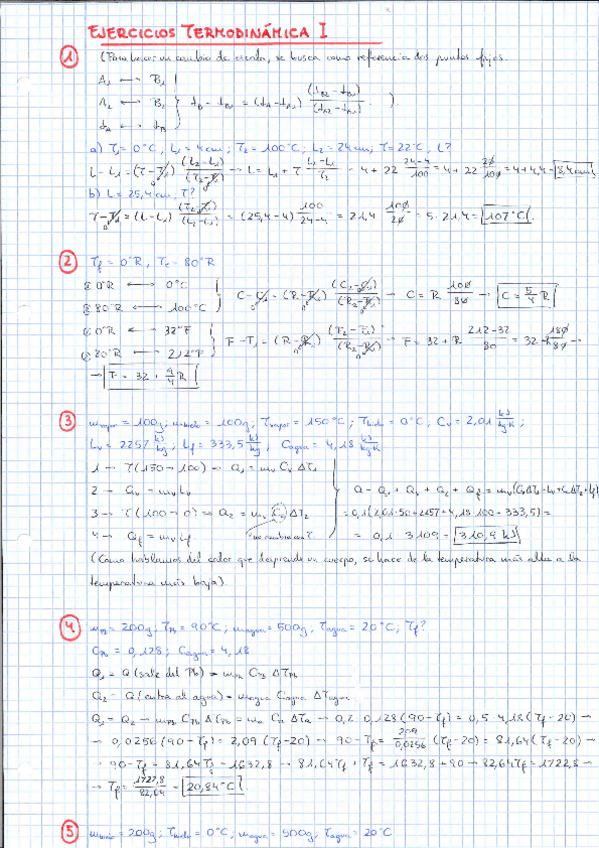 EJERCICIOS TERMODINÁMICA I
1 (Para hacer un cambio de escala, se busca como referencia dos puntos fijos.
A₁ ←→ B₁
A₂ ←→ B₂
t_A ←→ t_B
t_B - t_B₁ = (t_A - t_A₁) (t_B₂ - t_B₁)/(t_A₂ - t_A₁). )
a) T₁ = 0°C, L₁ = 4cm; T₂ = 100°C; L₂ = 24cm; T = 22°C, L?
L - L₁ = (T - T₁) (L₂ - L₁)/(T₂ - T₁) → L = L₁ + T = 4 + 22 24-4/100 = 4 + 22 20/100 = 4 + 4,4 = 8,4cm
b) L = 25,4cm, T?
T - T₁ = (L - L₁) (T₂ - T₁)/(L₂ - L₁) = (25,4 - 4) 100/24-4 = 21,4 100/20 = 5 · 21,4 = 107°C.
2 T_f = 0°R, T_c = 80°R
0°R ←→ 0°C
80°R ←→ 100°C
C - C₁ = (R - R₁) (C₂ - C₁)/(R₂ - R₁) → C = R 100/80 → C = 5/4 R
0°R ←→ 32°F
80°R ←→ 212°F
F - F₁ = (R - R₁) (F₂ - F₁)/(R₂ - R₁) → F = 32 + R 212-32/80 = 32 + R 180/80 →
→ F = 32 + 9/4 R
3 m_vapor = 100g; m_hielo = 100g; T_vapor = 150°C; T_hielo = 0°C, C_v = 2,01 kJ/kgK;
L_v = 2257 kJ/kg; L_f = 333,5 kJ/kg; C_agua = 4,18 kJ/kgK
1 → T(150→100) → Q₁ = m_v C_v ΔT₁
2 → Q_v = m_v L_v
3 → T(100→0) → Q₂ = m_v C_a ΔT₂
4 → Q_f = m_v L_f
Q = Q₁ + Q_v + Q₂ + Q_f = m_v (C_v ΔT₁ + L_v + C_a ΔT₂ + L_f)
= 0,1 (2,01·50 + 2257 + 4,18·100 + 333,5) =
= 0,1 · 3109 = 310,9 kJ
(Como hablamos del calor que desprende un cuerpo, se hace de la temperatura más alta a la
temperatura más baja)
4 m_Pb = 200g; T_Pb = 90°C; m_agua = 500g, T_agua = 20°C; T_f?
C_Pb = 0,128; C_agua = 4,18
Q₁ = Q (sale del Pb) = m_Pb C_Pb ΔT_Pb
Q₂ = Q (entra al agua) = m_agua C_agua ΔT_agua
Q₁ = Q₂ → m_Pb C_Pb ΔT_Pb = m_a C_a ΔT_a → 0,2 · 0,128 (90 - T_f) = 0,5 · 4,18 (T_f - 20) →
→ 0,0256 (90 - T_f) = 2,09 (T_f - 20) → 90 - T_f = 2,09/0,0256 (T_f - 20) = 81,64 (T_f - 20) →
→ 90 - T_f = 81,64 T_f - 1632,8 → 81,64 T_f + T_f = 1632,8 + 90 → 82,64 T_f = 1722,8 →
→ T_f = 1722,8/82,64 = 20,84°C
5 m_hielo = 200g; T_hielo = 0°C; m_agua = 500g, T_agua = 20°C